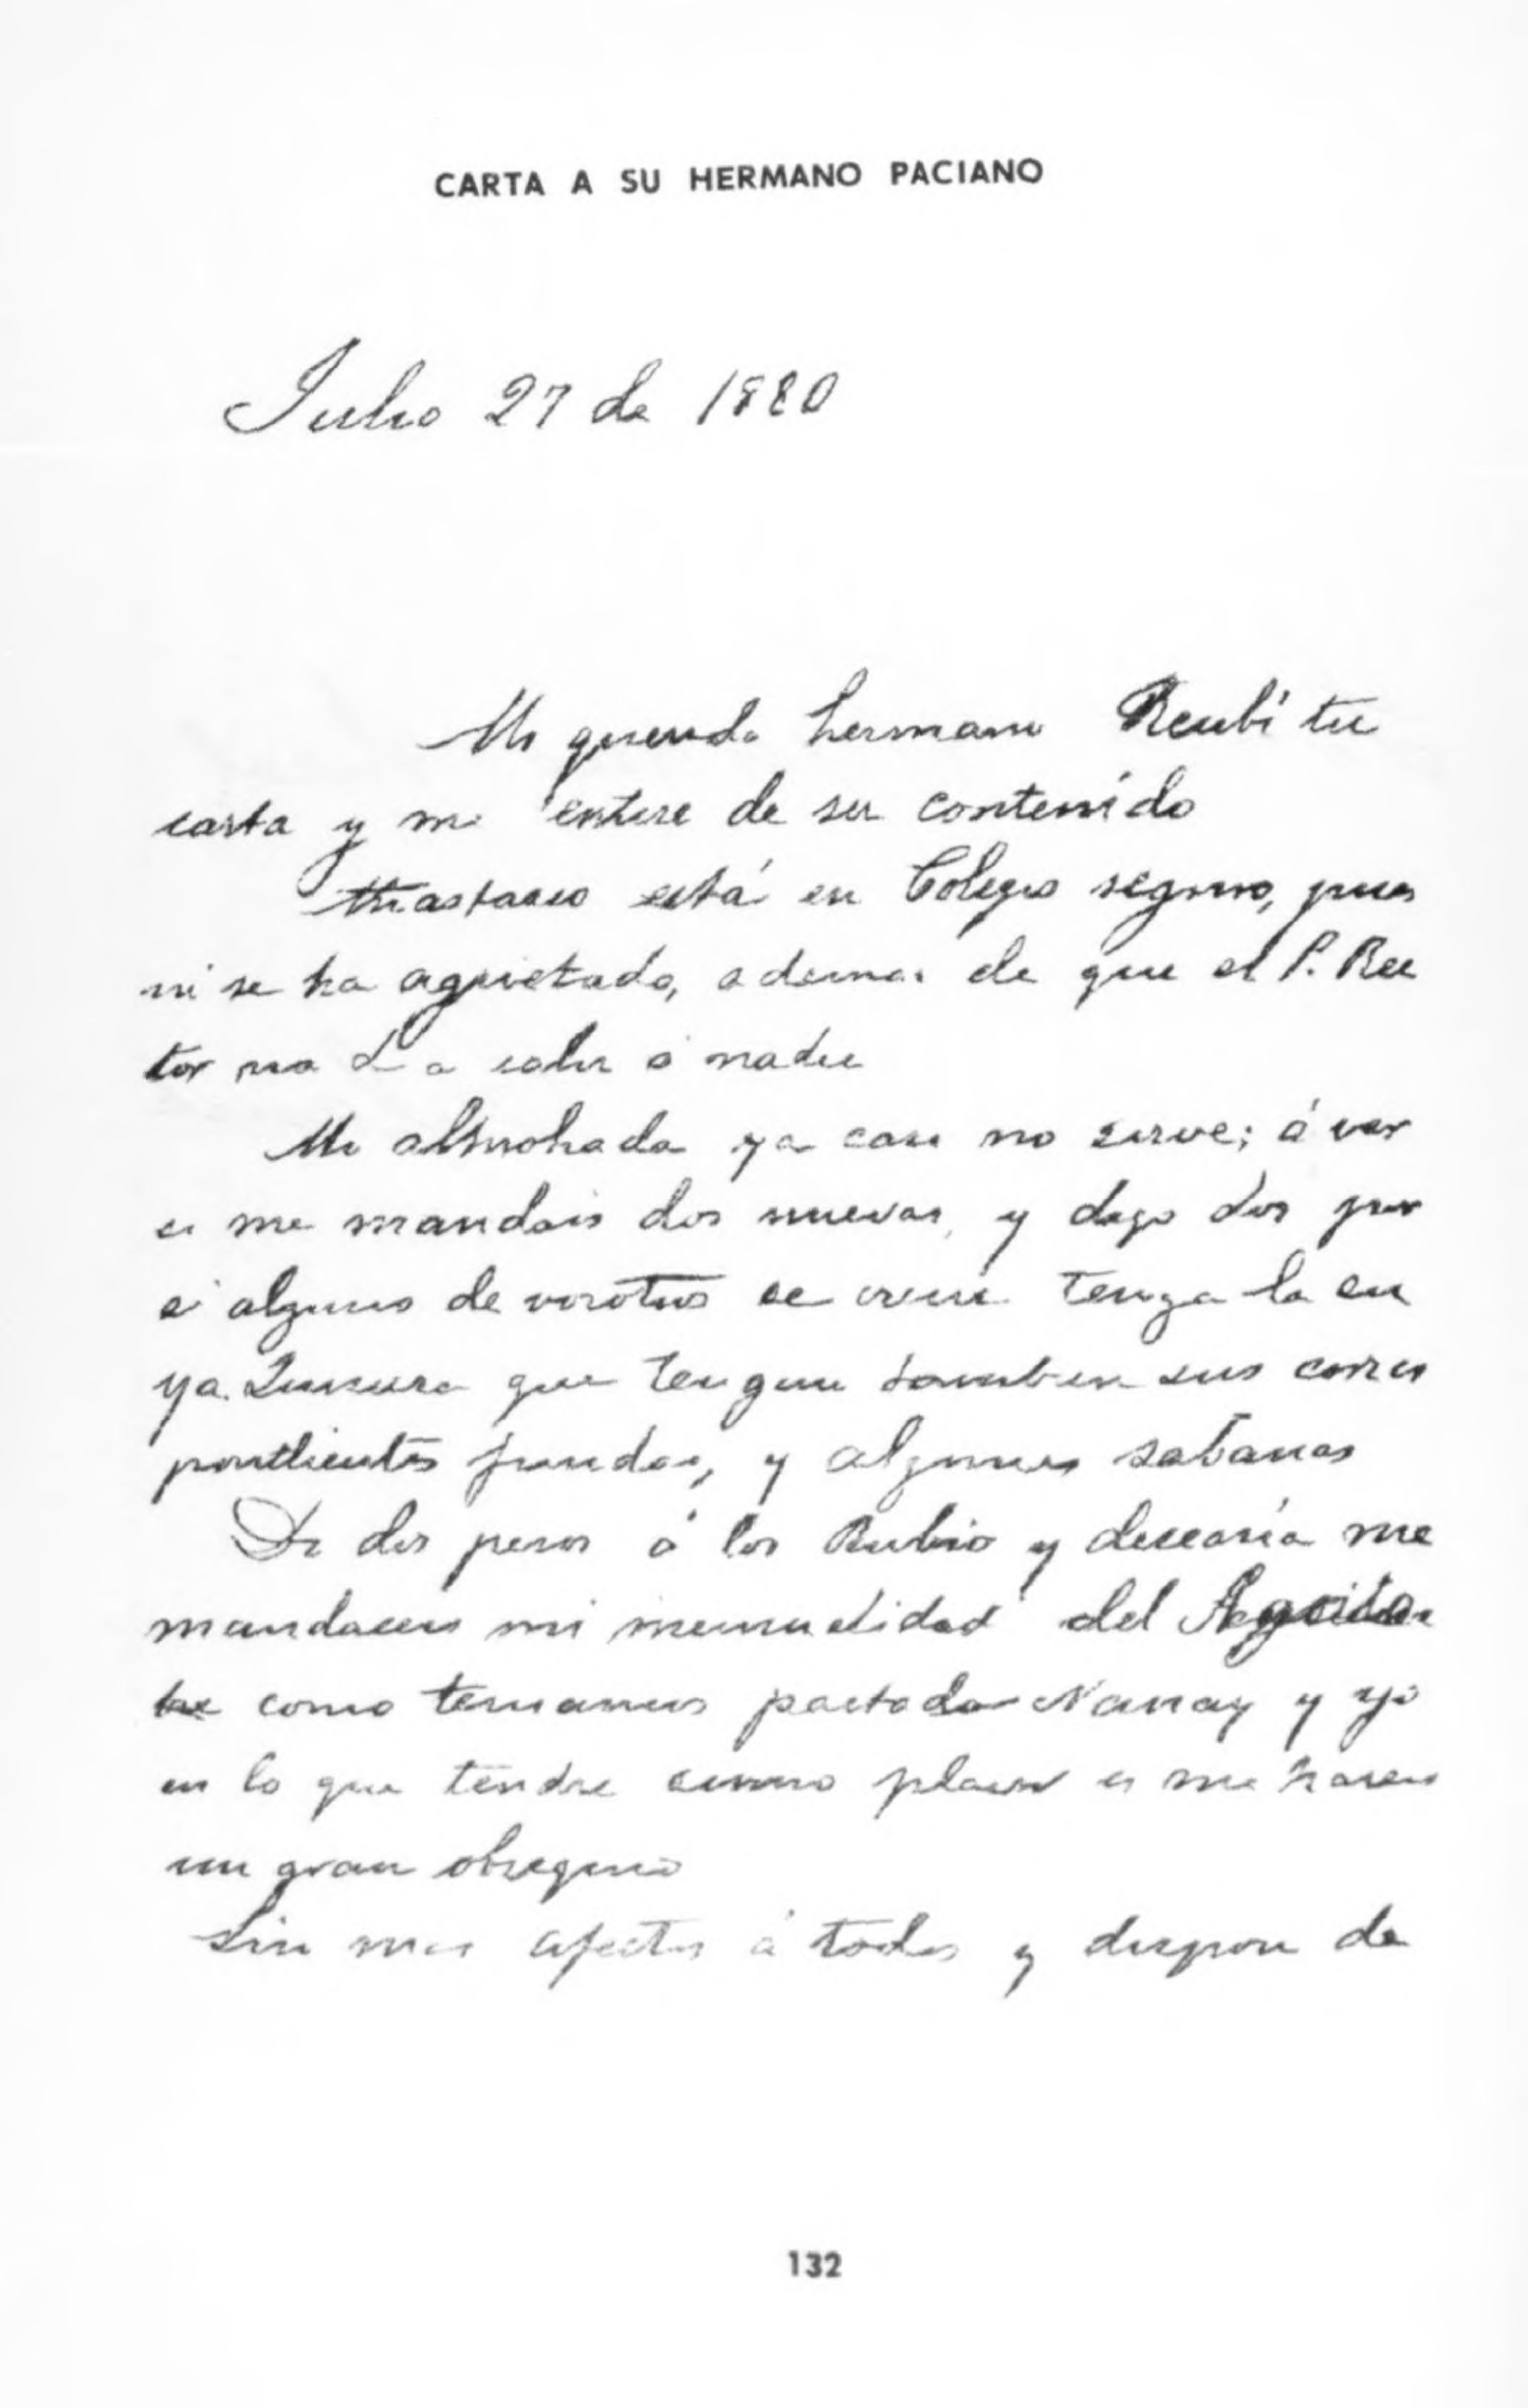 CARTA A SU HERMANO PACIANO
Julio 27 de 1880
Mi querido hermano Recibí tu
carta y me enteré de su contenido
está en Colegio seguro, pues
ni se ha agrietado, ademas de que el P. Rec
tor no da salir á nadie
Mi almohada ya casi no sirve; á ver
si me mandais dos nuevas, y digo dos por
si alguno de vosotros se tenga la su
ya. que tengan tambien sus corres
pondientes fundas, y algunas sabanas
Di dos pesos á los Rubio y desearia me
mandaseis mi mensualidad del
como teniamos pactado Nanay y yo
en lo que tendre sumo placer si me haceis
un gran obsequio
Sin mas afectos á todos y dispon de
132